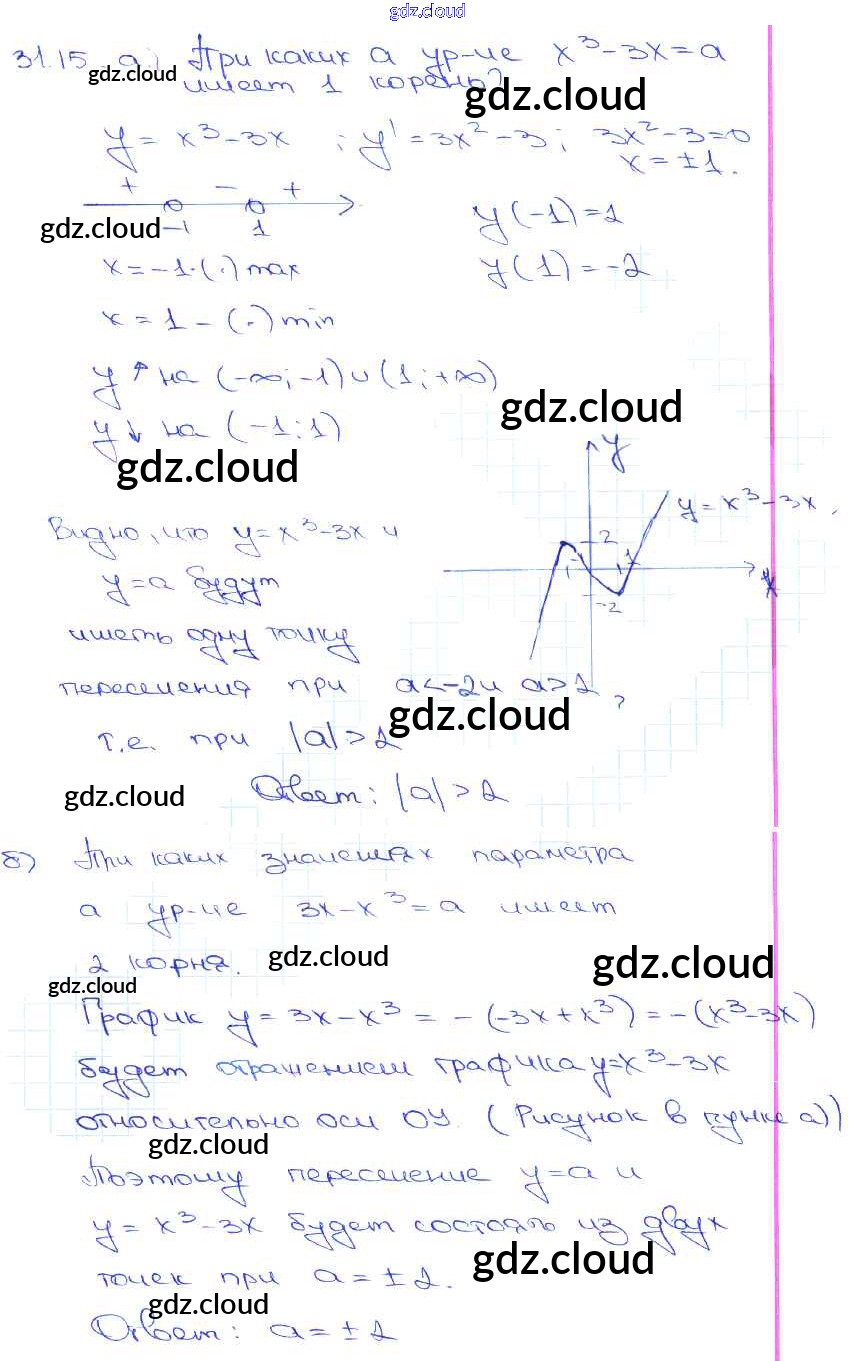 gdz.cloud
31.15 а) При каких а ур-ие x³-3x=a
gdz.cloud
имеет 1 корень?
gdz.cloud
y = x³-3x ; y' = 3x²-3 ; 3x²-3=0
x = ±1.
+ - +
-1 1
gdz.cloud
y(-1)=2
x=-1-(.) max
y(1)=-2
x=1-(.) min
y↑ на (-∞;-1)∪(1;+∞)
gdz.cloud
y↓ на (-1;1)
gdz.cloud
y
y=x³-3x.
Видно, что y=x³-3x и
2
-1 1
x
y=a будут
-2
иметь одну точку
пересечения при a<-2 и a>2,
gdz.cloud
т.е. при |a|>2
gdz.cloud
Ответ: |a|>2
б) При каких значениях параметра
а ур-ие 3x-x³=a имеет
2 корня.
gdz.cloud
gdz.cloud
gdz.cloud
График y=3x-x³ = -(-3x+x³) = -(x³-3x)
будет отражением графика y=x³-3x
относительно оси OY. (Рисунок в пунке а))
gdz.cloud
Поэтому пересечение y=a и
y=x³-3x будет состоять из двух
gdz.cloud
точек при a=±2.
gdz.cloud
Ответ: a=±2